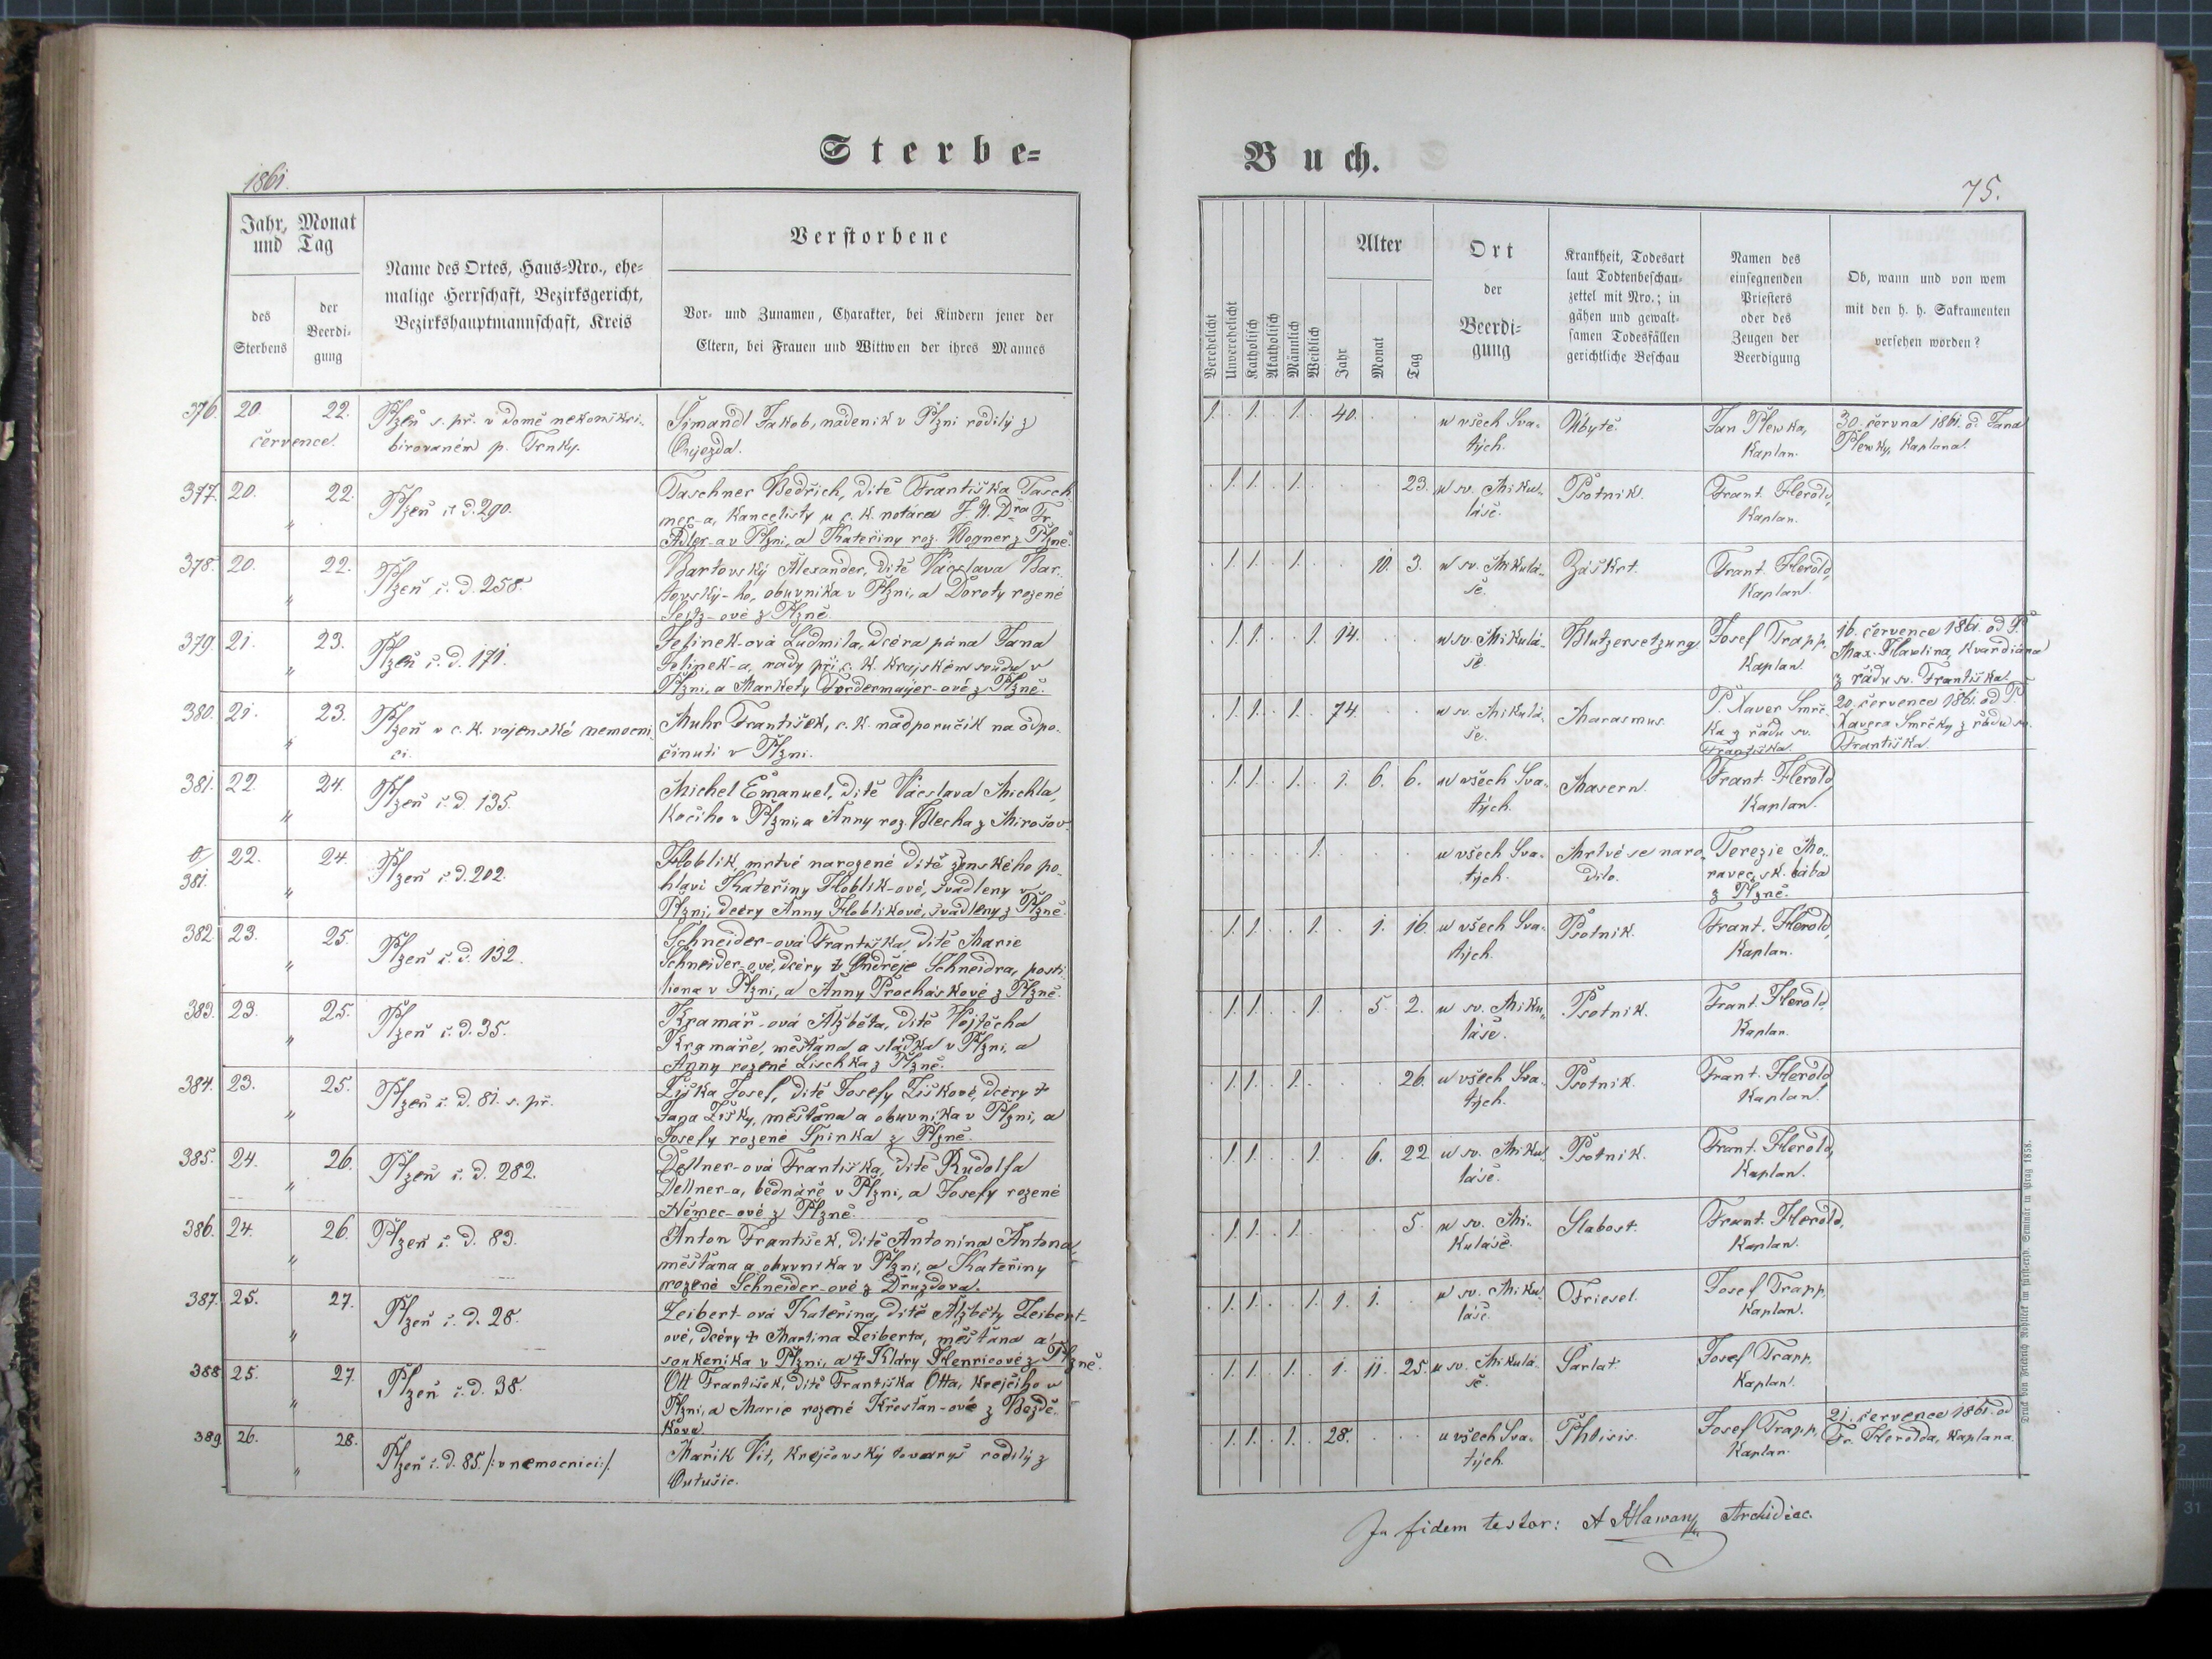 Sterbe=
Buch.
1861.
75.
Jahr, Monat
und Tag
des
Sterbens
der
Beerdi-
gung
Name des Ortes, Haus=Nro., ehe=
malige Herrschaft, Bezirksgericht,
Bezirkshauptmannschaft, Kreis
Verstorbene
Vor- und Zunamen, Charakter, bei Kindern jener der
Eltern, bei Frauen und Wittwen der ihres Mannes
Verehelicht
Unverehelicht
Katholisch
Akatholisch
Männlich
Weiblich
Alter
Jahr
Monat
Tag
Ort
der
Beerdi=
gung
Krankheit, Todesart
laut Todtenbeschau-
zettel mit Nro.; in
gähen und gewalt-
samen Todesfällen
gerichtliche Beschau
Namen des
einsegnenden
Priesters
oder des
Zeugen der
Beerdigung
Ob, wann und von wem
mit den h. h. Sakramenten
versehen worden?
376. 20. 22.
července.
Plzeň s. př. v domě nekonskri-
birovaném p. Trnky.
Šimandl Jakob, nádeník v Plzni rodilý z
Oujezda.
1. 1. 1. 40.
u všech Sva-
tých.
Úbytě.
Jan Plewka,
Kaplan.
30. června 1861. od Jana
Plewky, Kaplana.
377. 20. 22.
"
Plzeň č. d. 290.
Taschner Bedřich, dítě Františka Tasch-
ner-a, kancelisty u c. k. notáře J. U. Dra Fr.
Adler-a v Plzni, a Kateřiny roz. Wogner z Plzně.
1. 1. 1. 23.
u sv. Miku-
láše.
Psotník.
Frant. Herold,
Kaplan.
378. 20. 22.
"
Plzeň č. d. 258.
Bartovský Alexander, dítě Václava Bar-
tovský-ho, obuvníka v Plzni, a Doroty rozené
Seitz-ové z Plzně.
1. 1. 1. 10. 3.
u sv. Mikulá-
še.
Záškrt.
Frant. Herold,
Kaplan.
379. 21. 23.
"
Plzeň č. d. 171.
Jelínek-ová Ludmila, dcéra pána Jana
Jelínek-a, rady při c. k. krajském soudu v
Plzni, a Markety Fordermayer-ové z Plzně.
1. 1. 1. 14.
u sv. Mikulá-
še.
Blutzersetzung.
Josef Trapp,
Kaplan.
16. července 1861. od P.
Max. Hawlina, kvardiána
z řádu sv. Františka.
380. 21. 23.
"
Plzeň v c. k. vojenské nemocni-
ci.
Muhr František, c. k. nadporučík na odpo-
činuti v Plzni.
1. 1. 1. 74.
u sv. Mikulá-
še.
Marasmus.
P. Xaver Smrč-
ka z řádu sv.
Františka.
20. července 1861. od P.
Xavera Smrčky z řádu sv.
Františka.
381. 22. 24.
"
Plzeň č. d. 135.
Michel Emanuel, dítě Václava Michla,
kočího v Plzni, a Anny roz. Blecha z Mirošov.
1. 1. 1. 1. 6. 6.
u všech Sva-
tých.
Masern.
Frant. Herold,
Kaplan.
381. 22. 24.
"
Plzeň č. d. 202.
Hoblik, mrtvé narozené dítě ženského po-
hlaví Kateřiny Hoblik-ové, švadleny v
Plzni, dcéry Anny Hoblikové, švadleny z Plzně.
1.
u všech Sva-
tých.
Mrtvé se naro-
dilo.
Terezie Mo-
ravec, zk. bába
z Plzně.
382. 23. 25.
"
Plzeň č. d. 132.
Schneider-ová Františka, dítě Marie
Schneider-ové, dcéry † Ondřeje Schneidra, posti-
liona v Plzni, a Anny Procháskové z Plzně.
1. 1. 1. 1. 16.
u všech Sva-
tých.
Psotník.
Frant. Herold,
Kaplan.
383. 23. 25.
"
Plzeň č. d. 35.
Kramář-ová Alžběta, dítě Vojtěcha
Kramáře, měšťana a sládka v Plzni, a
Anny rozené Lischka z Plzně.
1. 1. 1. 5. 2.
u sv. Miku-
láše.
Psotník.
Frant. Herold,
Kaplan.
384. 23. 25.
"
Plzeň č. d. 81. s. př.
Liška Josef, dítě Josefy Liškové, dcéry †
Jana Lišky, měšťana a obuvníka v Plzni, a
Josefy rozené Špinka z Plzně.
1. 1. 1. 26.
u všech Sva-
tých.
Psotník.
Frant. Herold
Kaplan.
385. 24. 26.
"
Plzeň č. d. 282.
Dellner-ová Františka, dítě Rudolfa
Dellner-a, bednáře v Plzni, a Josefy rozené
Němec-ové z Plzně.
1. 1. 1. 6. 22.
u sv. Miku-
láše.
Psotník.
Frant. Herold,
Kaplan.
386. 24. 26.
"
Plzeň č. d. 83.
Anton František, dítě Antonína Antona,
měšťana a obuvníka v Plzni, a Kateřiny
rozené Schneider-ové z Druzdova.
1. 1. 1. 5.
u sv. Mi-
kuláše.
Slabost.
Frant. Herold,
Kaplan.
387. 25. 27.
"
Plzeň č. d. 28.
Leibert-ová Kateřina, dítě Alžběty Leibert-
ové, dcéry † Martina Leiberta, měšťana a
soukeníka v Plzni, a † Kláry Henricové z Plzně.
1. 1. 1. 1. 1.
u sv. Miku-
láše.
Friesel.
Josef Trapp,
Kaplan.
388. 25. 27.
"
Plzeň č. d. 38.
Ott František, dítě Františka Otta, krejčího v
Plzni, a Marie rozené Křesťan-ové z Bezdě-
kova.
1. 1. 1. 1. 11. 25.
u sv. Mikulá-
še.
Šarlat.
Josef Trapp,
Kaplan.
389. 26. 28.
"
Plzeň č. d. 85. /: v nemocnici :/.
Mařík Vít, krejčovský tovaryš rodilý z
Outušic.
1. 1. 1. 28.
u všech Sva-
tých.
Phtisis.
Josef Trapp,
Kaplan.
21. července 1861. od
Fr. Herolda, Kaplana.
In fidem testor: A Hlawan Archidiac.
Druck von Friedrich Rohliček im fürst-erzb. Seminär in Prag 1858.